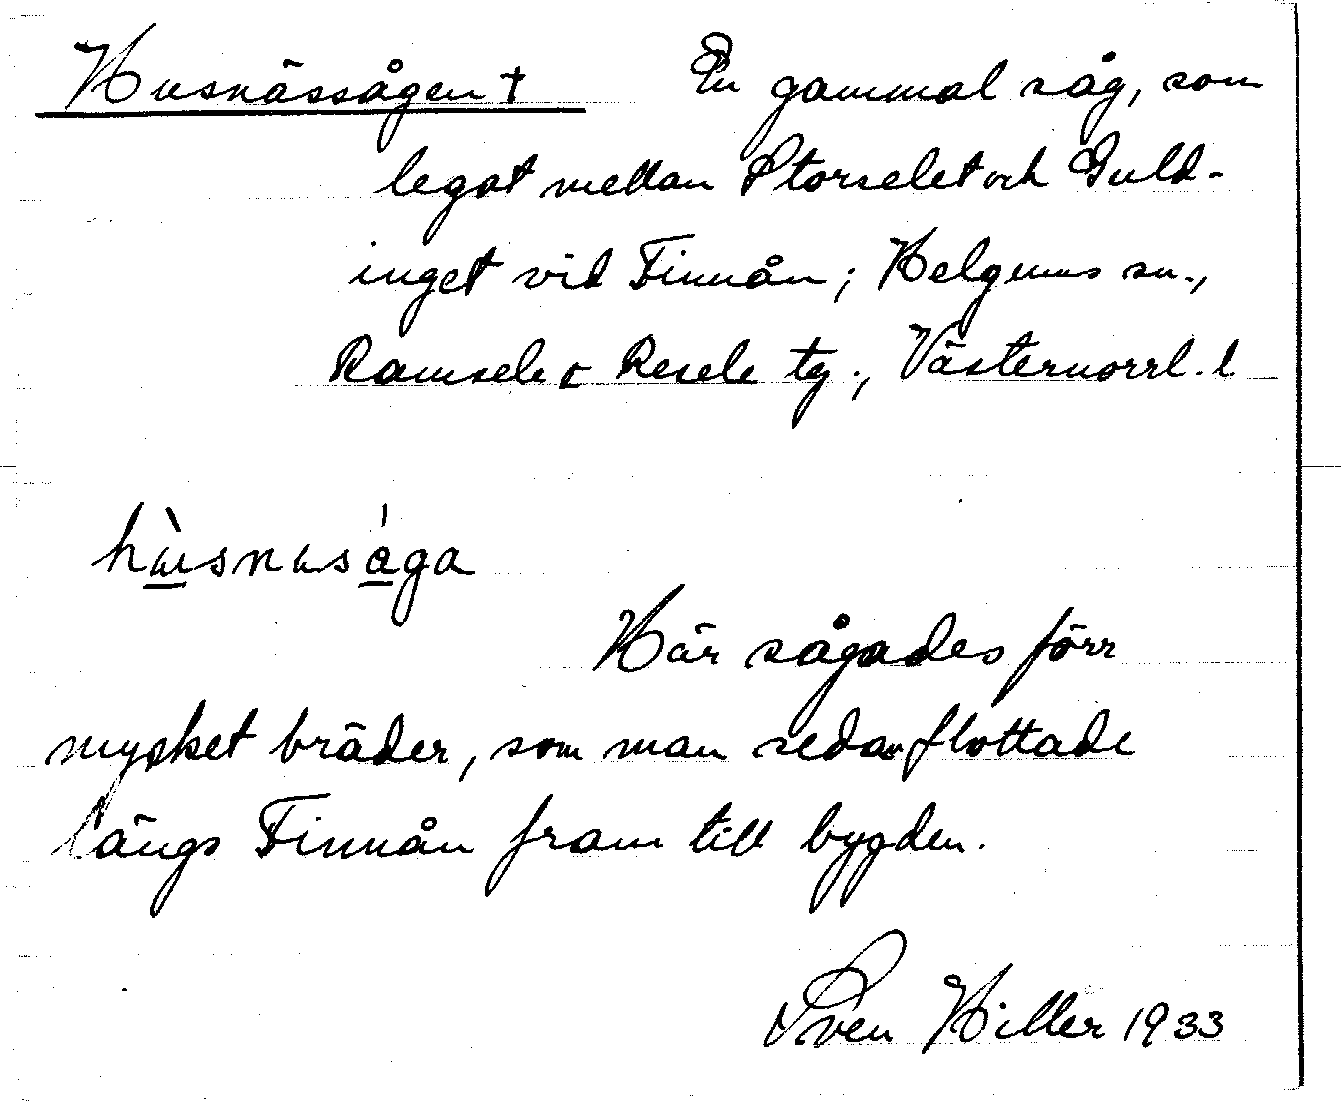 Husnässågen † En gammal såg, som
legat mellan Storselet och Guld-
inget vid Finnån; Helgums sn.,
Ramsele o Resele tg., Västernorrl. l
hùsnusága
Här sågades förr
mycket bräder, som man sedan flottade
längs Finnån fram till bygden.
Sven Hiller 1933